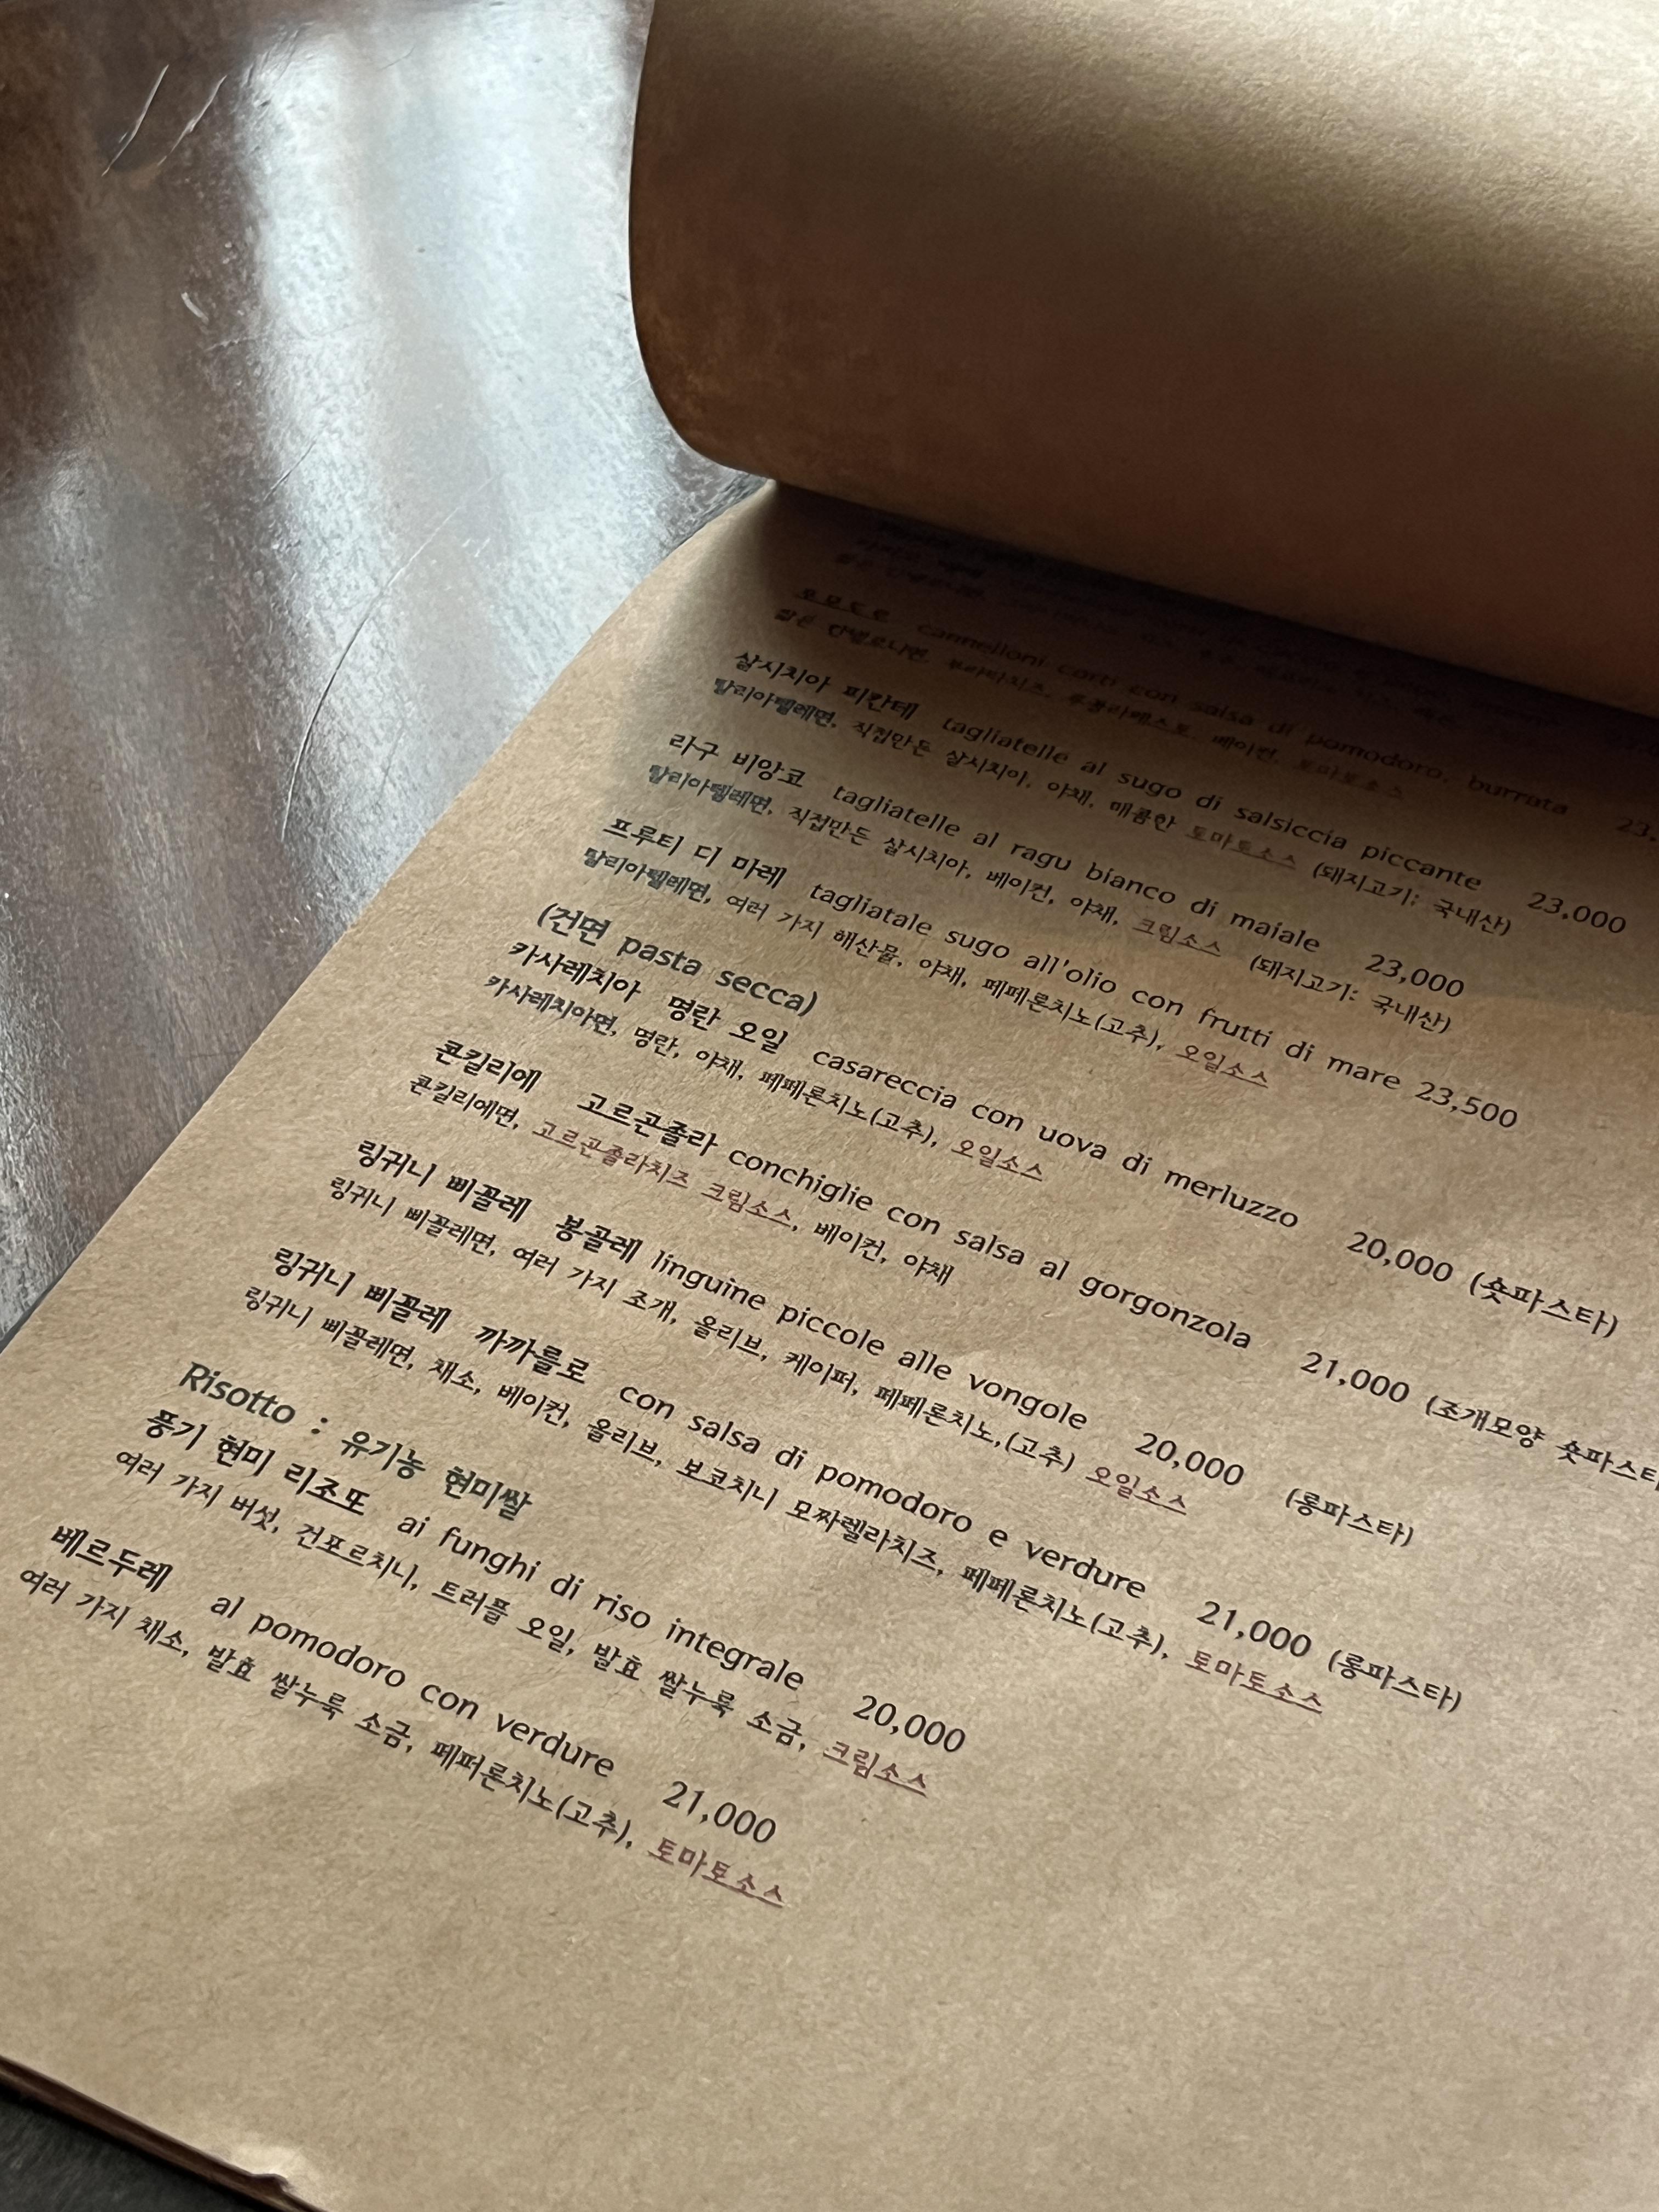 뽀모도로 cannelloni corti con salsa di pomodoro, burrata 23,
짧은 칸넬로니면, 부라타치즈, 루꼴라페스토, 베이컨, 토마토소스
살시치아 피칸테 tagliatelle al sugo di salsiccia piccante 23,000
탈리아텔레면, 직접만든 살시치아, 야채, 매콤한 토마토소스 (돼지고기: 국내산)
라구 비앙코 tagliatelle al ragu bianco di maiale 23,000
탈리아텔레면, 직접만든 살시치아, 베이컨, 야채, 크림소스 (돼지고기: 국내산)
프루티 디 마레 tagliatale sugo all'olio con frutti di mare 23,500
탈리아텔레면, 여러 가지 해산물, 야채, 페페론치노(고추), 오일소스
(건면 pasta secca)
카사레치아 명란 오일 casareccia con uova di merluzzo 20,000 (숏파스타)
카사레치아면, 명란, 야채, 페페론치노(고추), 오일소스
콘킬리에 고르곤졸라 conchiglie con salsa al gorgonzola 21,000 (조개모양 숏파스타
콘킬리에면, 고르곤졸라치즈 크림소스, 베이컨, 야채
링귀니 삐꼴레 봉골레 linguine piccole alle vongole 20,000 (롱파스타)
링귀니 삐꼴레면, 여러 가지 조개, 올리브, 케이퍼, 페페론치노,(고추) 오일소스
링귀니 삐꼴레 까까를로 con salsa di pomodoro e verdure 21,000 (롱파스타)
링귀니 삐꼴레면, 채소, 베이컨, 올리브, 보코치니 모짜렐라치즈, 페페론치노(고추), 토마토소스
Risotto : 유기농 현미쌀
풍기 현미 리조또 ai funghi di riso integrale 20,000
여러 가지 버섯, 건포르치니, 트러플 오일, 발효 쌀누룩 소금, 크림소스
베르두레 al pomodoro con verdure 21,000
여러 가지 채소, 발효 쌀누룩 소금, 페퍼론치노(고추), 토마토소스